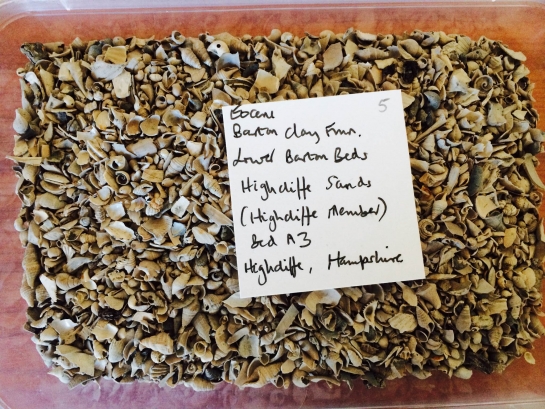 5
Eocene
Barton Clay Fmn.
Lower Barton Beds
Highcliffe Sands
(Highcliffe Member)
Bed A3
Highcliffe, Hampshire